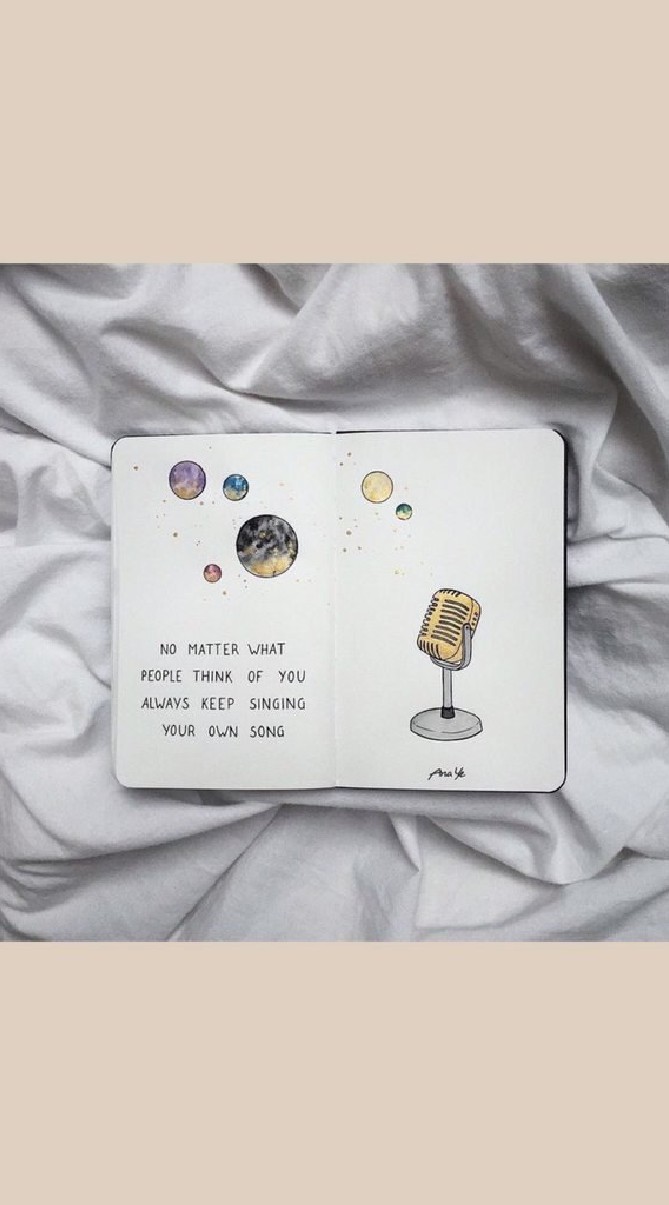 NO MATTER WHAT
PEOPLE THINK OF YOU
ALWAYS KEEP SINGING
YOUR OWN SONG
Ana Ye